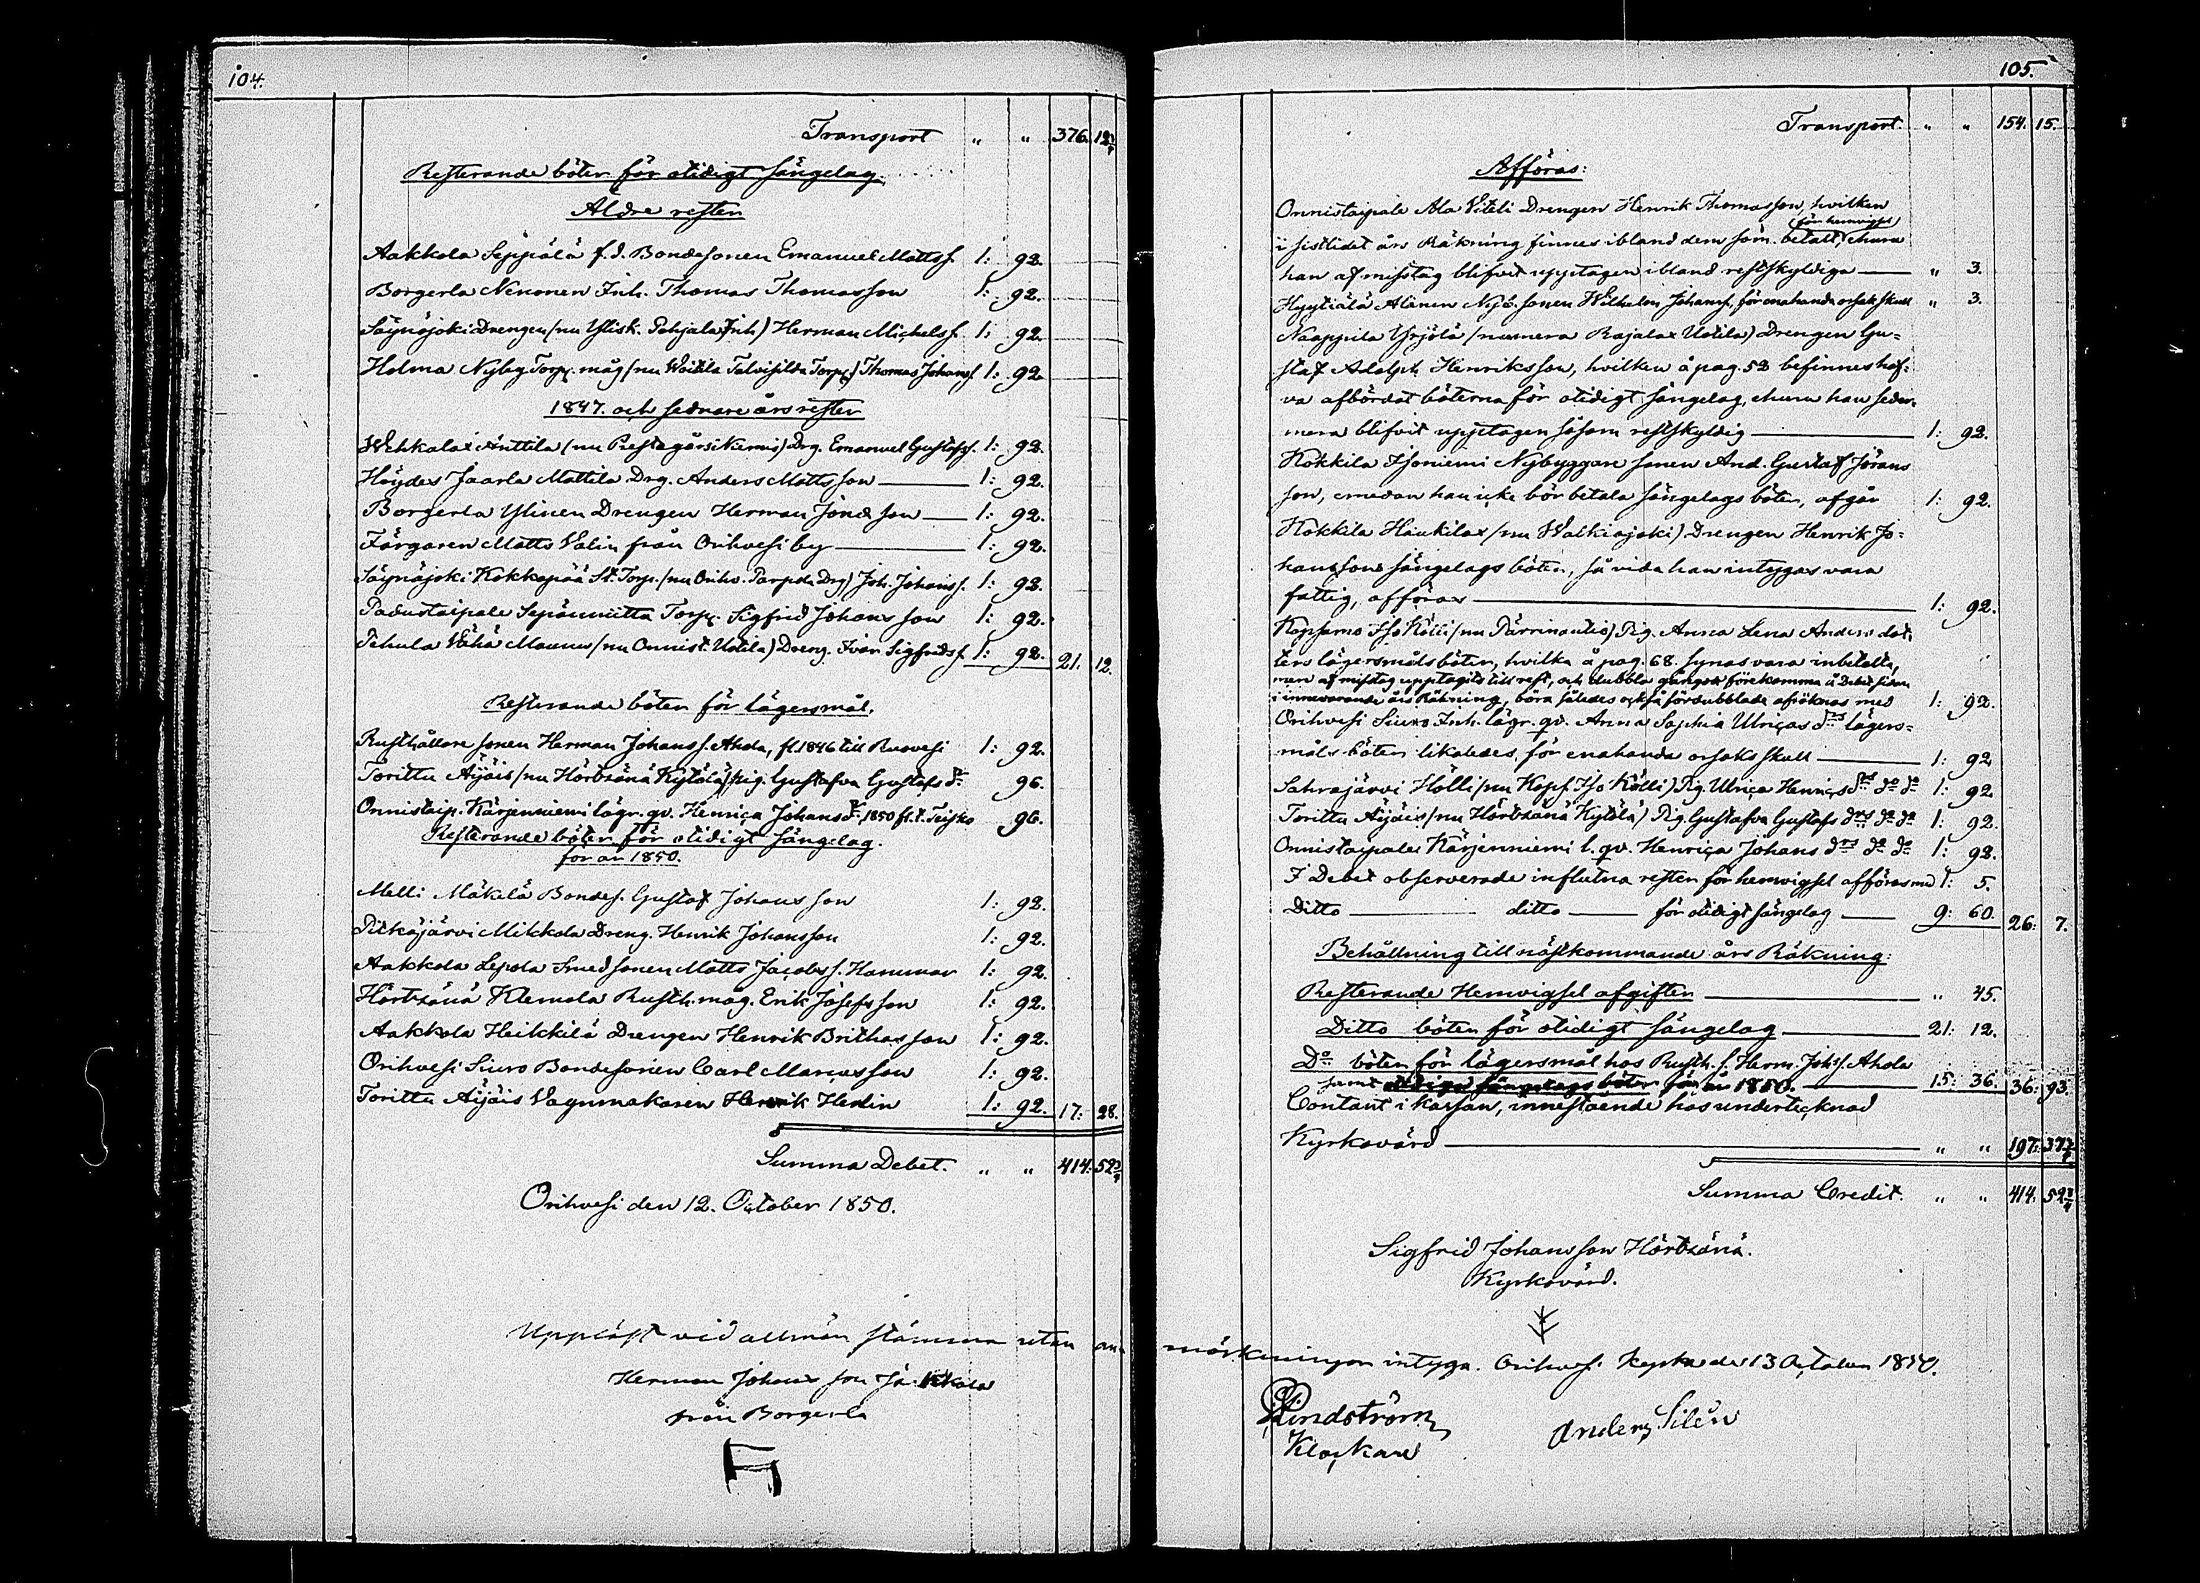 104.
Transport " " 376. 12 3/4
Resterande böter för otidigt sängelag.
Äldre rester
Aakkola Seppälä f.d. Bondesonen Emanuel Mattss. 1: 92.
Borgerla Nenonen Inh. Thomas Thomasson 1: 92.
Säynäjoki Drengen (nu Ylisk. Pohjala Inh.) Herman Michelss. 1: 92.
Holma Nyby Torp. måg (nu Woitila Talvisilda Torp.) Thomas Johanss. 1: 92
1847. och sednare års rester
Wehkalax Anttila (nu Prestegårs Niemis) Drg. Emanuel Gustafss. 1: 92.
Höydes Jaarla Mattila Drg. Anders Mattsson 1: 92.
Borgerla Ylinen Drengen Herman Jönsson 1: 92.
Färgaren Matts Valin från Orihvesi by 1: 92.
Säynäjoki Kokkopää St. Torp. (nu Orihv. Parpola Drg) Joh. Johanss. 1: 92.
Padustaipale Sepänniitta Torp. Sigfrid Johansson 1: 92.
Pehula Vähä Maunu (nu Onnist. Uotila) Dreng. Ivar Sigfridss. 1: 92. 21. 12.
Resterande böter för lägersmål.
Rusthållare sonen Herman Johanss. Ahola, fl. 1846 till Ruovesi 1: 92.
Torittu Äijäis (nu Hörtsänä Kytölä) Pig. Gustafva Gustafs dr 96.
Onnistaip. Kärjenniemi lägr. qv. Henrica Johans dr, 1850 fl. t. Teisko 96.
Resterande böter för otidigt sängelag.
för år 1850.
Melli Mäkelä Bondes. Gustaf Johansson 1: 92.
Pitkäjärvi Mikkola Dreng. Henrik Johansson 1: 92.
Aakkola Lepola Smedsonen Matts Jacobss. Hammar 1: 92.
Hörtsänä Klemola Rusth. måg. Erik Josefsson 1: 92.
Aakkola Heikkilä Drengen Henrik Brithasson 1: 92.
Orihvesi Siuro Bondesonen Carl Marcusson 1: 92.
Torittu Äijäis Vagnmakaren Henrik Hedin 1: 92. 17: 28.
Summa Debet. " " 414. 52 3/4
Orihvesi den 12. October 1850.
Uppläst vid allmän stämma utan an-
Herman Johansson
från Borgerla
105.
Transport. " " 154. 15.
Afföras:
Onnistaipale Ala Viteli Drengen Henrik Thomasson, hvilken
(för hemvigsel)
i sistlidet års Räkning finnes ibland dem som betalt, ehuru
han af misstag blifvit upptagen ibland restskyldiga " 3.
Hyytiälä Alanen Nyb. sonen Wilhelm Johanss. för enahanda orsak skull " 3.
Naappila Yrjölä (numera Rajalax Uotila) Drengen Gu-
staf Adolph Henriksson, hvilken å pag. 52 befinnes haf-
va afbördat böterna för otidigt sängelag, ehuru han seder-
mera blifvit upptagen såsom restskyldig 1: 92.
Kokkila Isoniemi Nybyggare sonen And. Gustaf Jörans
son, emedan han icke bör betala sängelags böter, afgår 1: 92.
Kokkila Haukilax (nu Walkiajoki) Drengen Henrik Jo-
hanssons sängelags böter, så vida han intygas vara
fattig, afföras 1: 92.
Kopsamo Iso Källi (nu Pärrinautio) Pig. Anna Lena Anders dot-
ters lägersmåls böter, hvilka å pag. 68. synas vara inbetalta,
men af misstag upptagits till rest, och dubbla gånger förekomma å Debet sidan
i innevarande års Räkning, böra således också fördubblade afräknas med 1: 92.
Orihvesi Siuro Inh. lägr. qv. Anna Sophia Ulricas drs lägers-
måls böter likaledes, för enahanda orsaks skull 1: 92
Sahrajärvi Hölli (nu Kops. Iso Källi) Pig. Ulrica Henrics drs do do 1: 92
Torittu Äijäis (nu Hörtsänä Kytölä) Pig. Gustafva Gustafs drs do do 1: 92.
Onnistaipale Kärjenniemi l. qv. Henrica Johans drs do do 1: 92.
I Debet observerade influtna rester för hemvigsel afföras med 1: 5.
Ditto ditto för otidigt sängelag 9: 60. 26: 7.
Behållning till nästkommande års Räkning:
Resterande Hemvigsel afgifter " 45.
Ditto böter för otidigt sängelag 21: 12.
Do böter för lägersmål hos Rusth. s. Herm. Johs. Ahola
samt för år 1850. 15: 36. 36: 93.
Contant i kassan, innestående hos undertecknad
Kyrkovärd " " 197: 37 3/4
Summa Credit. " " 414. 52 3/4
Sigfrid Johansson Hörtsänä.
Kyrkovärd.
märkningar intyga. Orihvesi kyrka den 13 October 1850.
Lindström
Klockare
Anders Silén